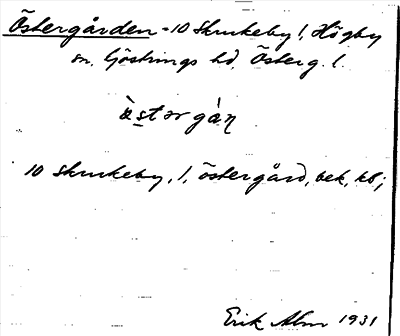 Östergården - 10 Skrukeby!, Högby
sn, Göstrings hd, Österg. l.
östərgån
10 Skrukeby, 1, östergård, bek, kb;
Erik Alm 1931